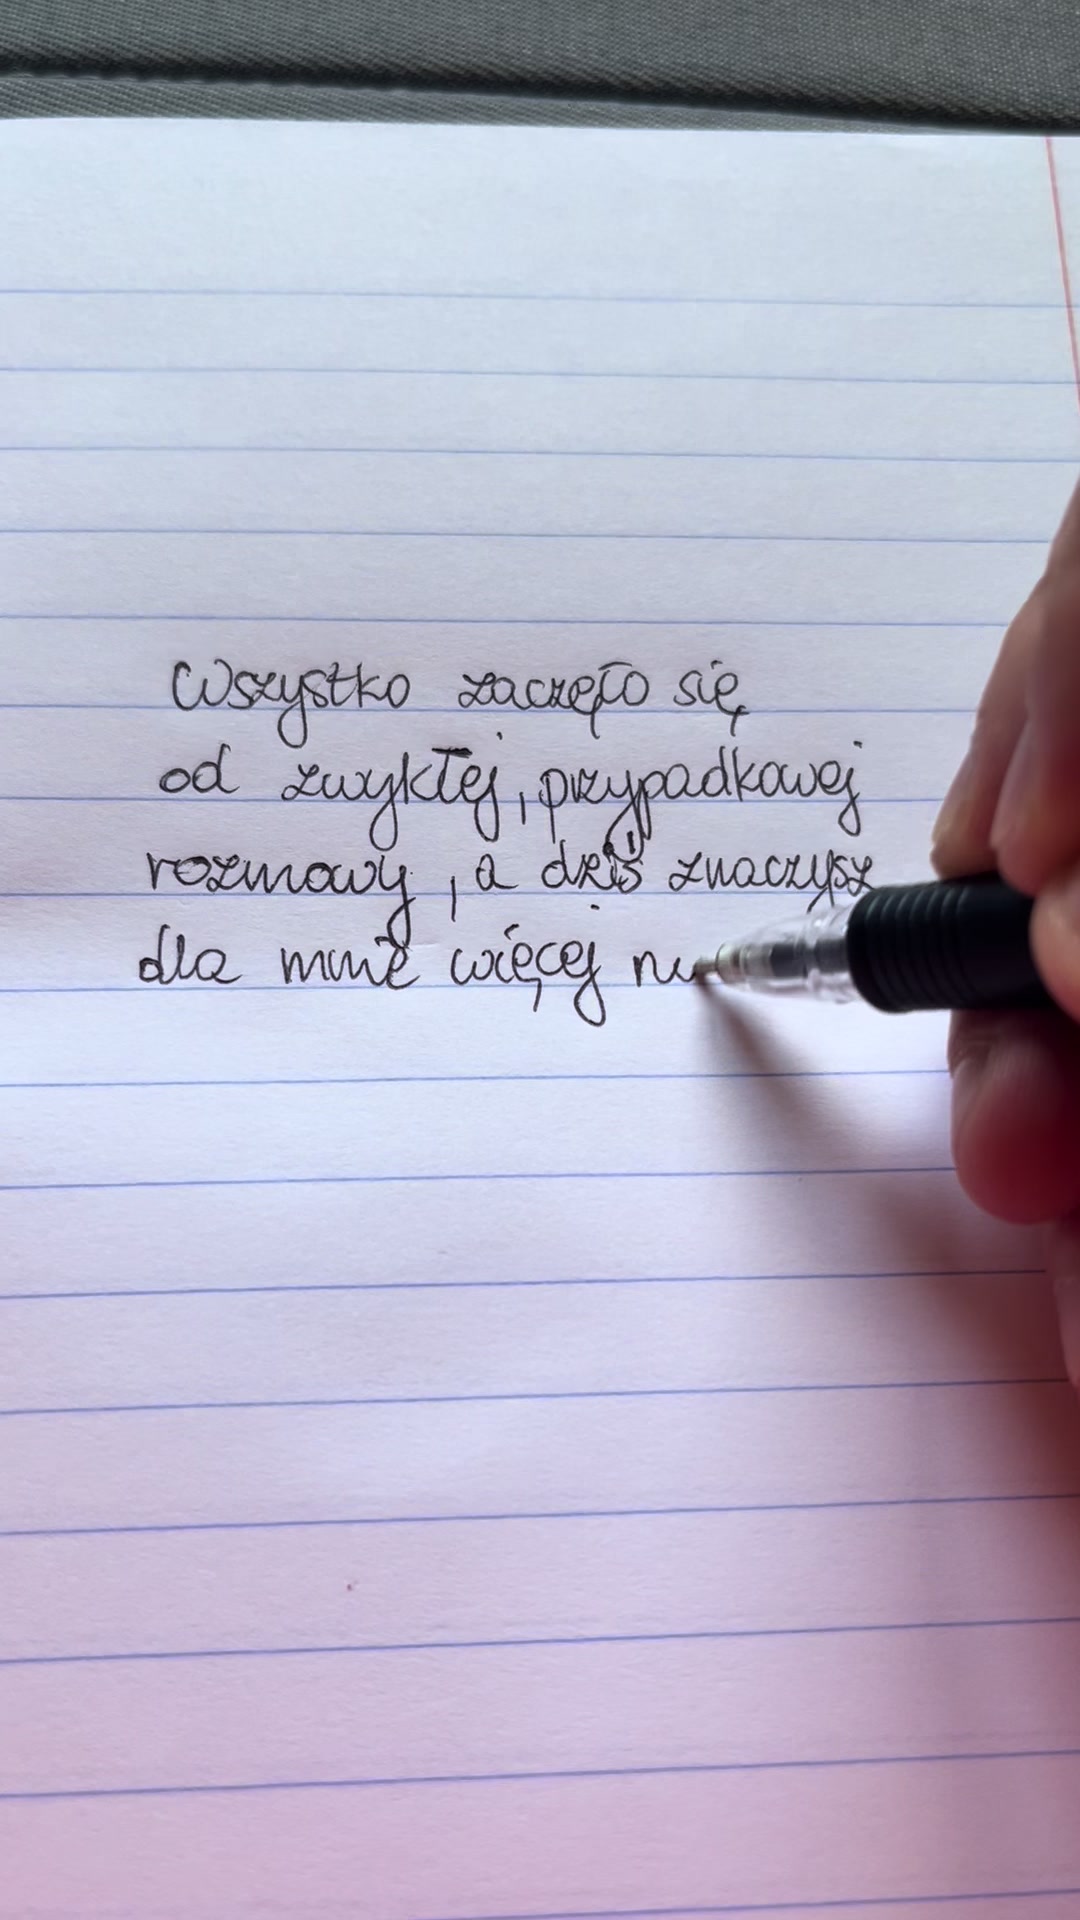 Wszystko zaczęło się
od zwykłej, przypadkowej
rozmowy, a dziś znaczysz
dla mnie więcej